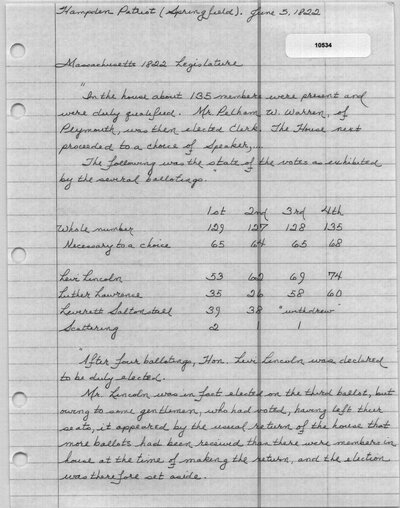 Hampden Patriot (Springfield). June 5, 1822
10534
Massachusetts 1822 Legislature
"In the house about 135 members were present and
were duly qualified. Mr Pelham W. Warren, of
Plymouth, was then elected Clerk. The House next
proceeded to a choice of Speaker,....
The following was the state of the votes as exhibited
by the several ballotings."
1st 2nd 3rd 4th
Whole number 129 127 128 135
Necessary to a choice 65 64 65 68
Levi Lincoln 53 62 69 74
Luther Lawrence 35 26 58 60
Leverett Saltonstall 39 38 "withdrew"
Scattering 2 1 1
"After four ballotings, Hon. Levi Lincoln was declared
to be duly elected.
Mr. Lincoln was in fact elected on the third ballot, but
owing to some gentlemen, who had voted, having left their
seats, it appeared by the usual return of the house that
more ballots had been received than there were members in
house at the time of making the return, and the election
was therefore set aside.